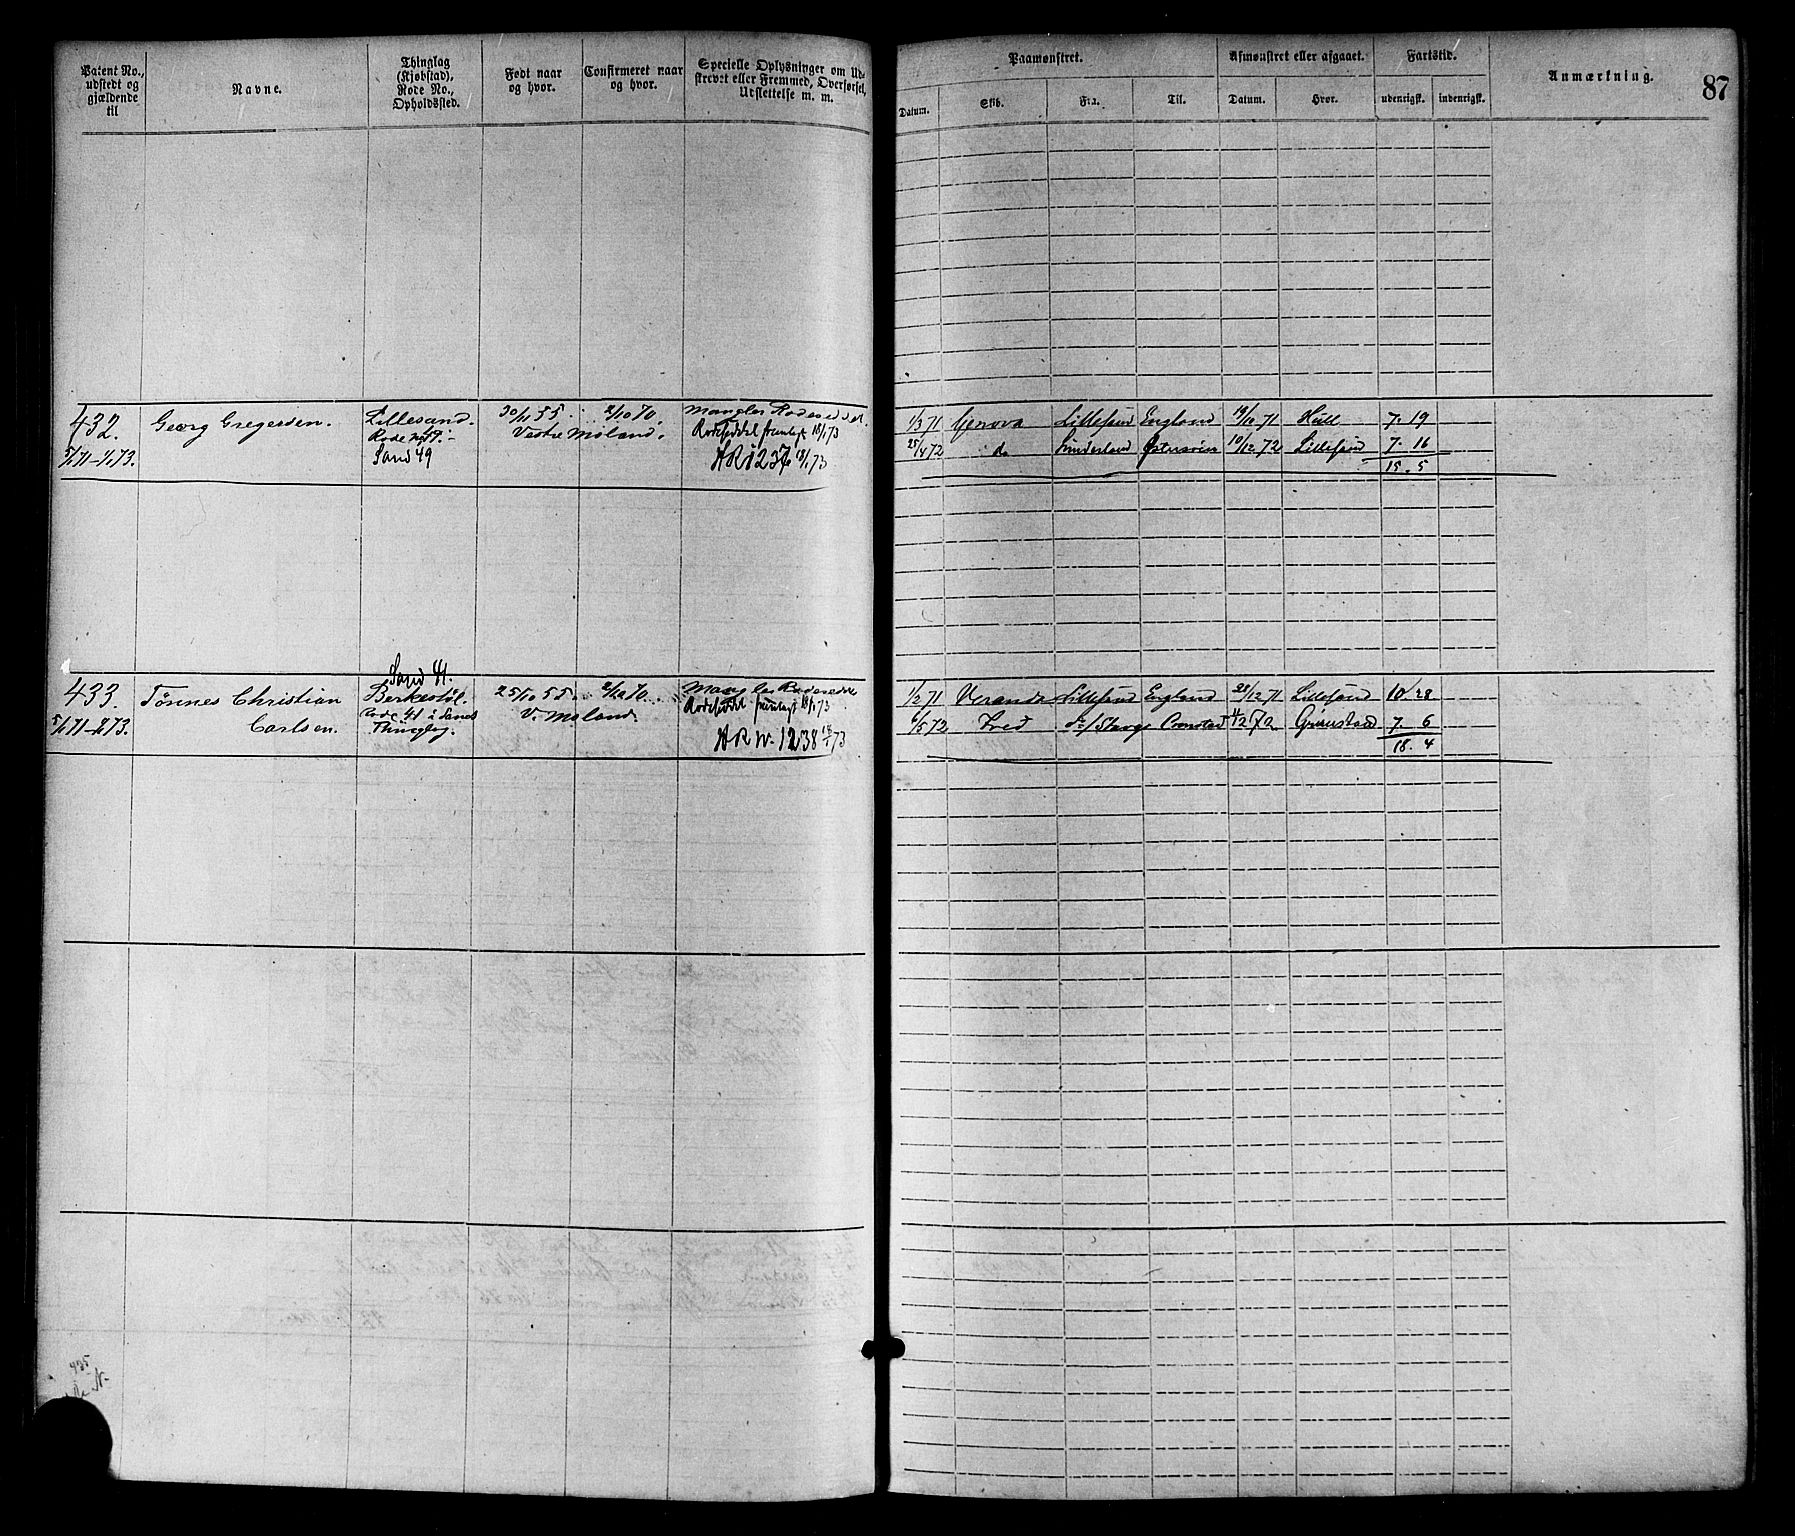 87
Patent No., udstedt og gjældende til
Navne.
Thinglag (Kjøbstad), Rode No., Opholdssted.
Født naar og hvor.
Confirmeret naar og hvor.
Specielle Oplysninger om Udskrevet eller Fremmed, Overførsel, Udslettelse m. m.
Paamønstret.
Afmønstret eller afgaaet.
Fartstid.
Anmærkning.
Datum. Skib. Fra. Til. Datum. Hvor. udenrigsk. indenrigsk.
432. Georg Gregersen. Lillesand. 30/11 55. 2/10 70. Mangler Rodeseddel.
Rode No 19. Vestre Moland. Rodeseddel fremlagt 18/1 73
5/1 71-1/1 73. Sand 49 AR 1237 18/1 73
1/3 71 Genova Lillesand England 19/10 71 Hull 7. 19
25/4 72 do Sunderland Østersøen 10/12 72 Lillesand 7. 16
15. 5
Sand 41.
433. Tønnes Christian Berkestøl. 25/10 55. 2/10 70. Mangler Rodeseddel
Carlsen. Rode 41 i Sands V. Moland. Rodeseddel fremlagt 18/1 73
5/1 71-1/1 73. Thinglag. AR No. 1238 18/1 73
1/2 71 Veranda Lillesand England 28/12 71 Lillesand 10 28
/5 72 Fred Cronstad /12 72 Grimstad 7. 6
18. 4
435